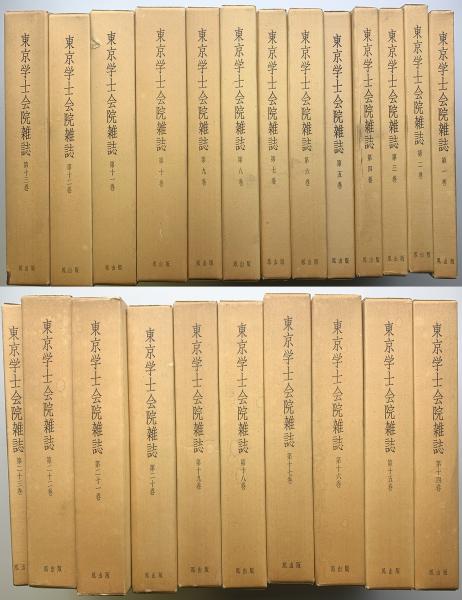 東京学士会院雑誌 第十三巻 鳳出版
東京学士会院雑誌 第十二巻 鳳出版
東京学士会院雑誌 第十一巻 鳳出版
東京学士会院雑誌 第十巻 鳳出版
東京学士会院雑誌 第九巻 鳳出版
東京学士会院雑誌 第八巻 鳳出版
東京学士会院雑誌 第七巻 鳳出版
東京学士会院雑誌 第六巻 鳳出版
東京学士会院雑誌 第五巻 鳳出版
東京学士会院雑誌 第四巻 鳳出版
東京学士会院雑誌 第三巻 鳳出版
東京学士会院雑誌 第二巻 鳳出版
東京学士会院雑誌 第一巻 鳳出版
東京学士会院雑誌 第二十三巻 鳳出
東京学士会院雑誌 第二十二巻 鳳出版
東京学士会院雑誌 第二十一巻 鳳出版
東京学士会院雑誌 第二十巻 鳳出版
東京学士会院雑誌 第十九巻 鳳出版
東京学士会院雑誌 第十八巻 鳳出版
東京学士会院雑誌 第十七巻 鳳出版
東京学士会院雑誌 第十六巻 鳳出版
東京学士会院雑誌 第十五巻 鳳出版
東京学士会院雑誌 第十四巻 鳳出版